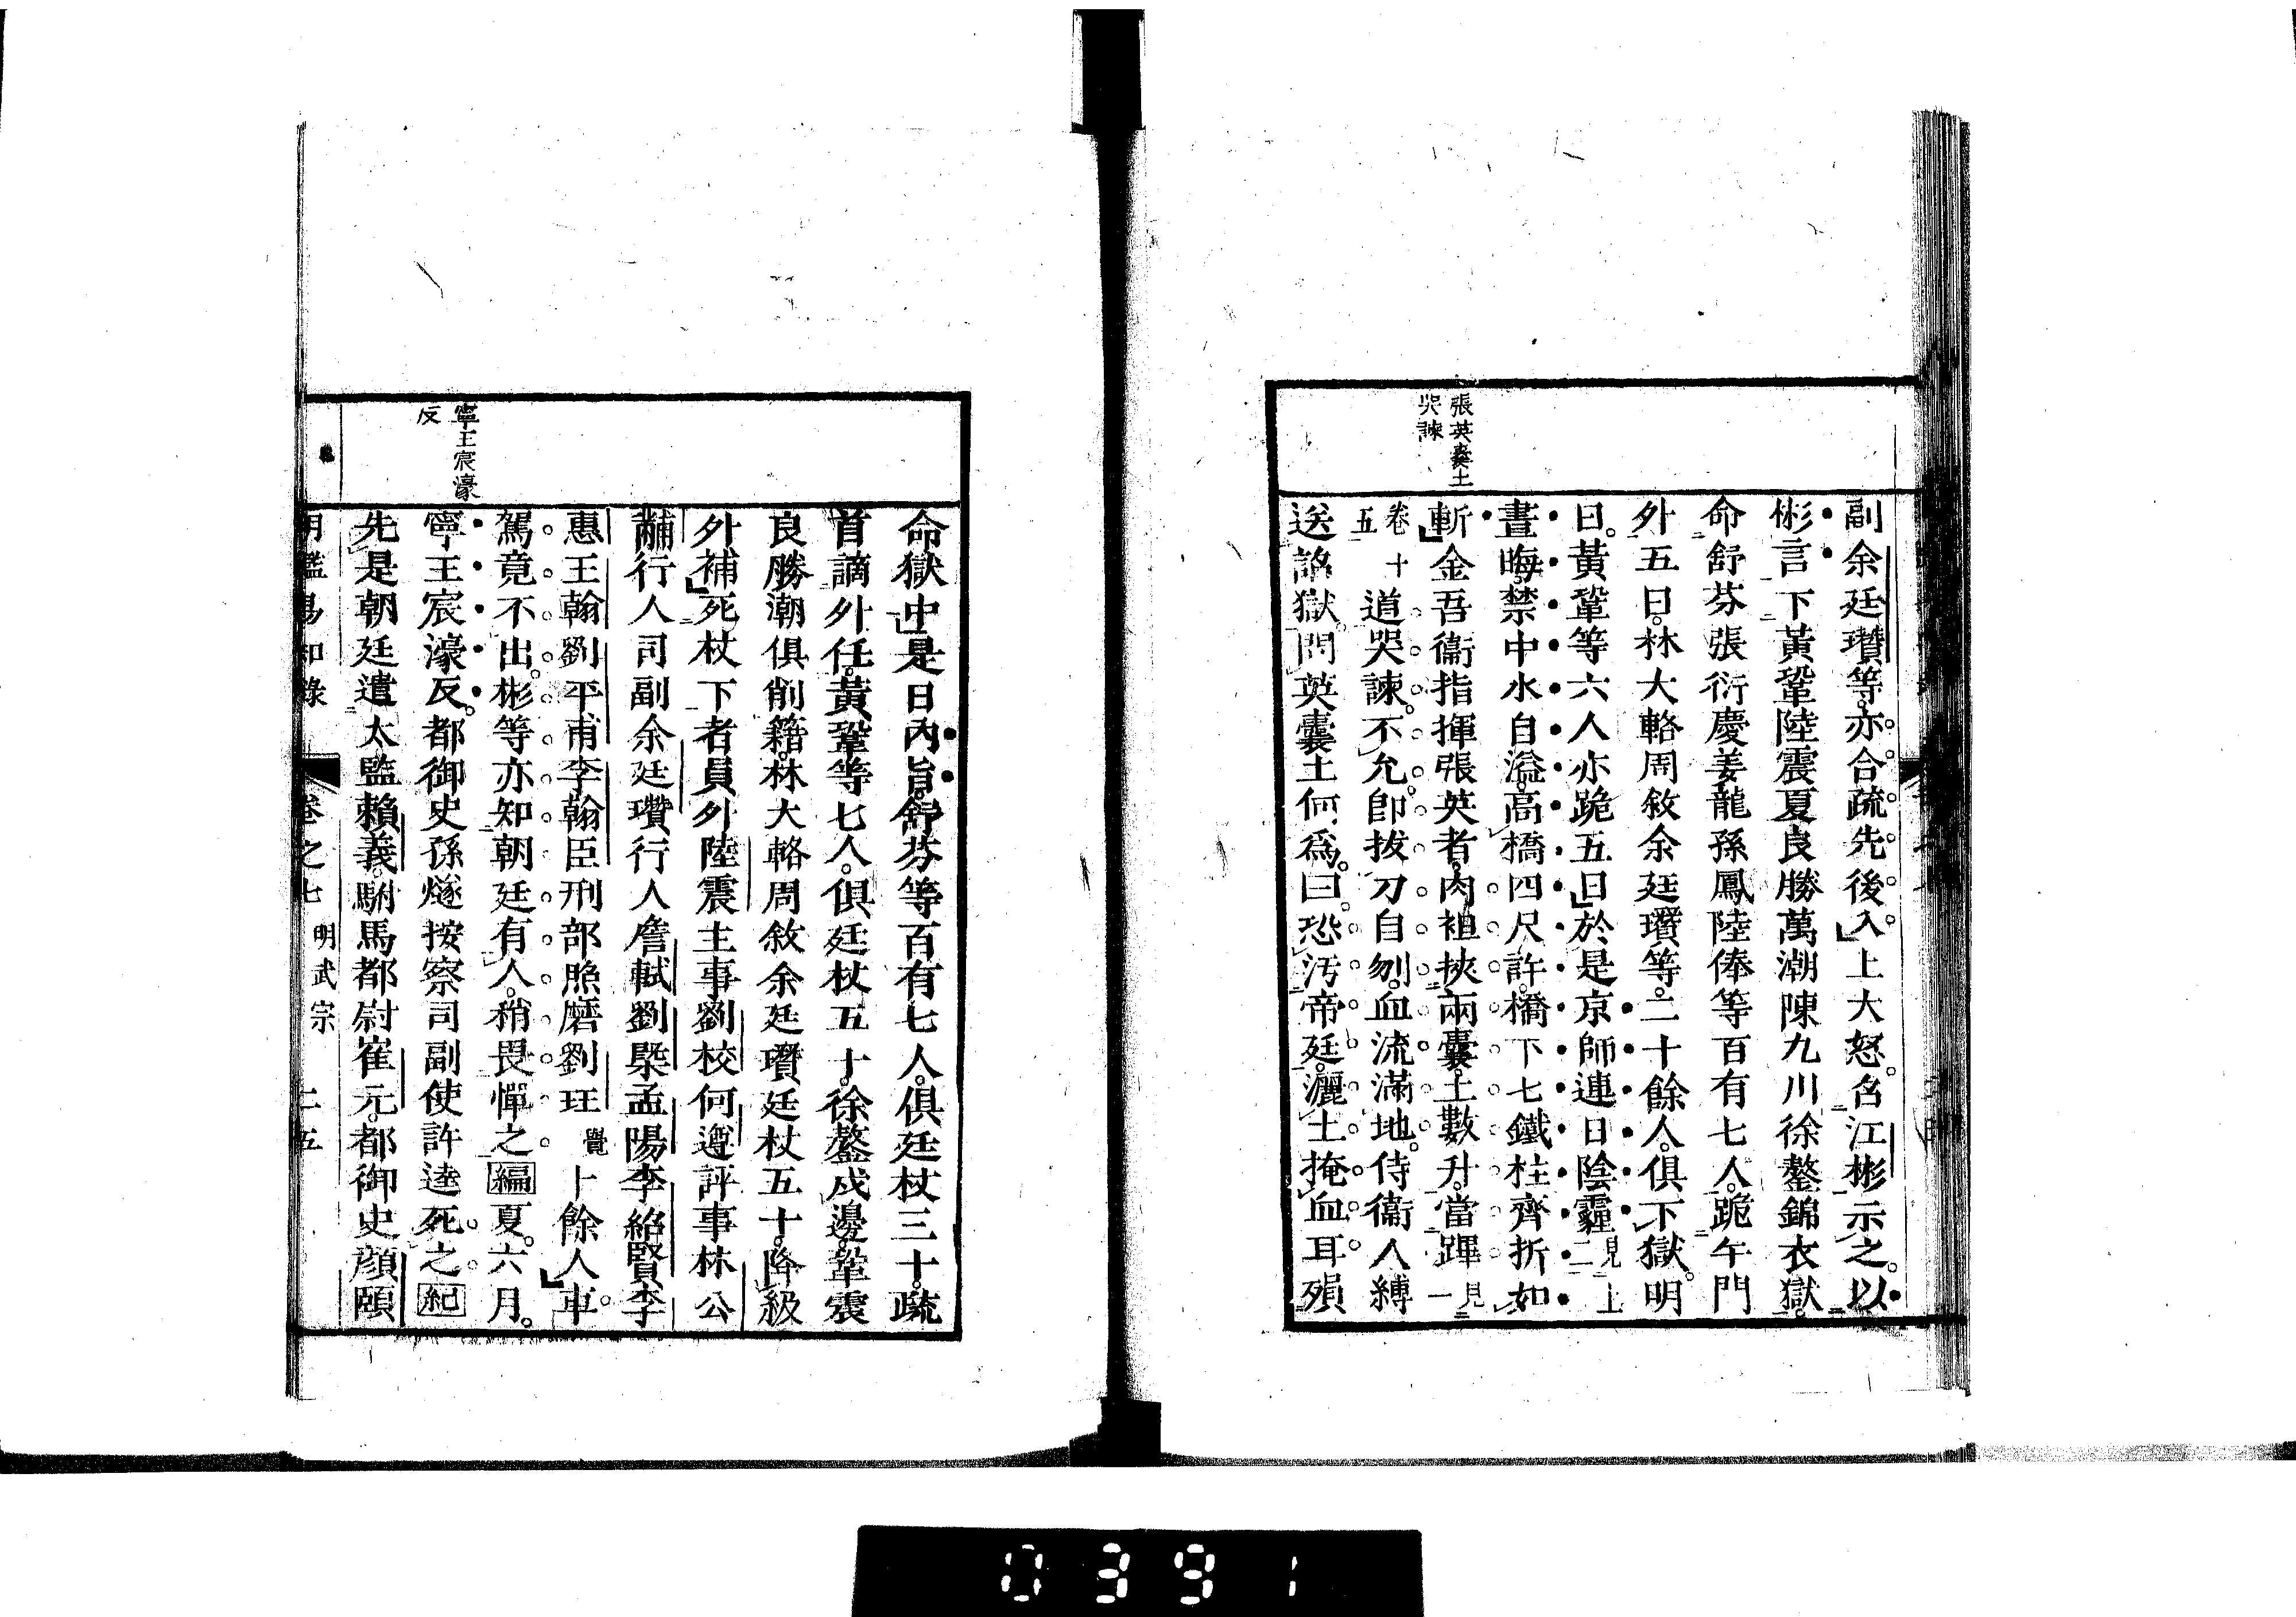 張英囊土
哭諫
副余廷瓚等。亦合疏先後入。上大怒。召江彬示之。以
彬言下黃鞏陸震夏良勝萬潮陳九川徐鏊錦衣獄。
命舒芬張衍慶姜龍孫鳳陸俸等百有七人。跪午門
外五日。林大輅周敘余廷瓚等。二十餘人。俱下獄。明
日。黃鞏等六人亦跪五日。於是京師連日陰霾見上二
晝晦。禁中水自溢。高橋四尺許。橋下七鐵柱齊折如
斬。金吾衞指揮張英者。肉袒挾兩囊。土數升。當蹕見一
卷十五道哭諫。不允。卽拔刀自刎。血流滿地。侍衞人縛
送詔獄。問英囊土何爲。曰。恐汚帝廷。灑土掩血耳。殞
命獄中。是日內旨。舒芬等百有七人。俱廷杖三十。疏
首謫外任。黃鞏等七人。俱廷杖五十。徐鏊戍邊。鞏震
良勝潮俱削籍。林大輅周敘余廷瓚廷杖五十。降級
外補。死杖下者員外陸震主事劉校何遵評事林公
黼行人司副余廷瓚行人詹軾劉槩孟陽李紹賢李
惠王翰劉平甫李翰臣刑部照磨劉珏覺十餘人。車
駕竟不出。彬等亦知朝廷有人。稍畏憚之編夏。六月。
寧王宸濠反。都御史孫燧按察司副使許逵死之。紀
先是朝廷遣太監賴義。駙馬都尉崔元。都御史顏頤
寧王宸濠
反
明鑑易知錄 卷之七 明武宗 二五